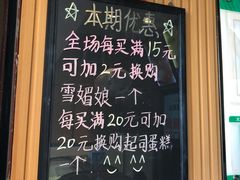 ☆本期优惠☆
全场每买满15元
可加2元换购
雪媚娘一个
每买满20元可加
20元换购起司蛋糕
一个 ^^ ^^